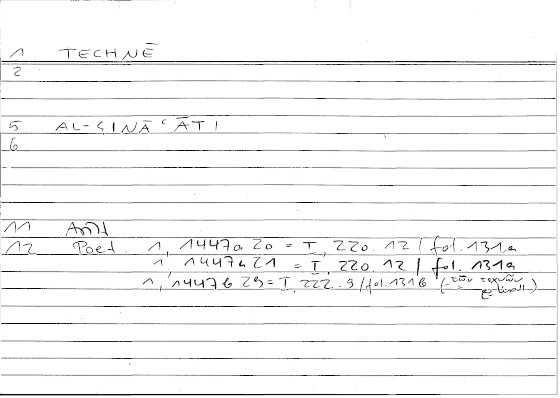 1 TECHNĒ
2
5 AL-ṢINĀʿĀTI
6
11 Arist
12 Poet. 1, 1447a20 = T, 220.12 / fol. 131a
1, 1447a21 = T, 220.12 / fol. 131a
1, 1447b29 = T, 222.9 / fol. 131b (τῶν τεχνῶν
الصنائع)